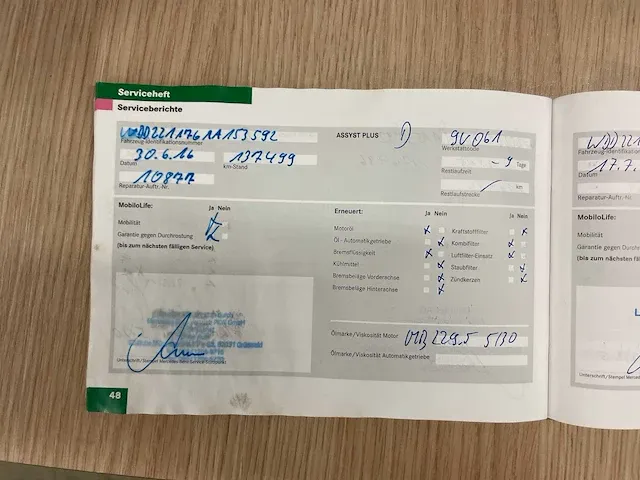 Serviceheft
Serviceberichte
WDD2211761A153592
Fahrzeug-Identifikationsnummer
30.6.16
137499
Datum
km-Stand
10877
Reparatur-Auftr.-Nr.
ASSYST PLUS
D
9V061
Werkstattcode
- 9 Tage
Restlaufzeit
km
Restlaufstrecke
MobiloLife:
Ja Nein
Mobilität
Garantie gegen Durchrostung
(bis zum nächsten fälligen Service)
Erneuert:
Ja Nein
Ja Nein
Motoröl
Kraftstofffilter
Öl - Automatikgetriebe
Kombifilter
Bremsflüssigkeit
Luftfilter-Einsatz
Kühlmittel
Staubfilter
Bremsbeläge Vorderachse
Zündkerzen
Bremsbeläge Hinterachse
Ölmarke/Viskosität Motor
MB 229.5 5/30
Ölmarke/Viskosität Automatikgetriebe
48
WDD221
Fahrzeug-Identifikation
17.7.
Datum
Reparatur-Auftr.-Nr.
MobiloLife:
Mobilität
Garantie gegen Durchrostung
(bis zum nächsten fälligen